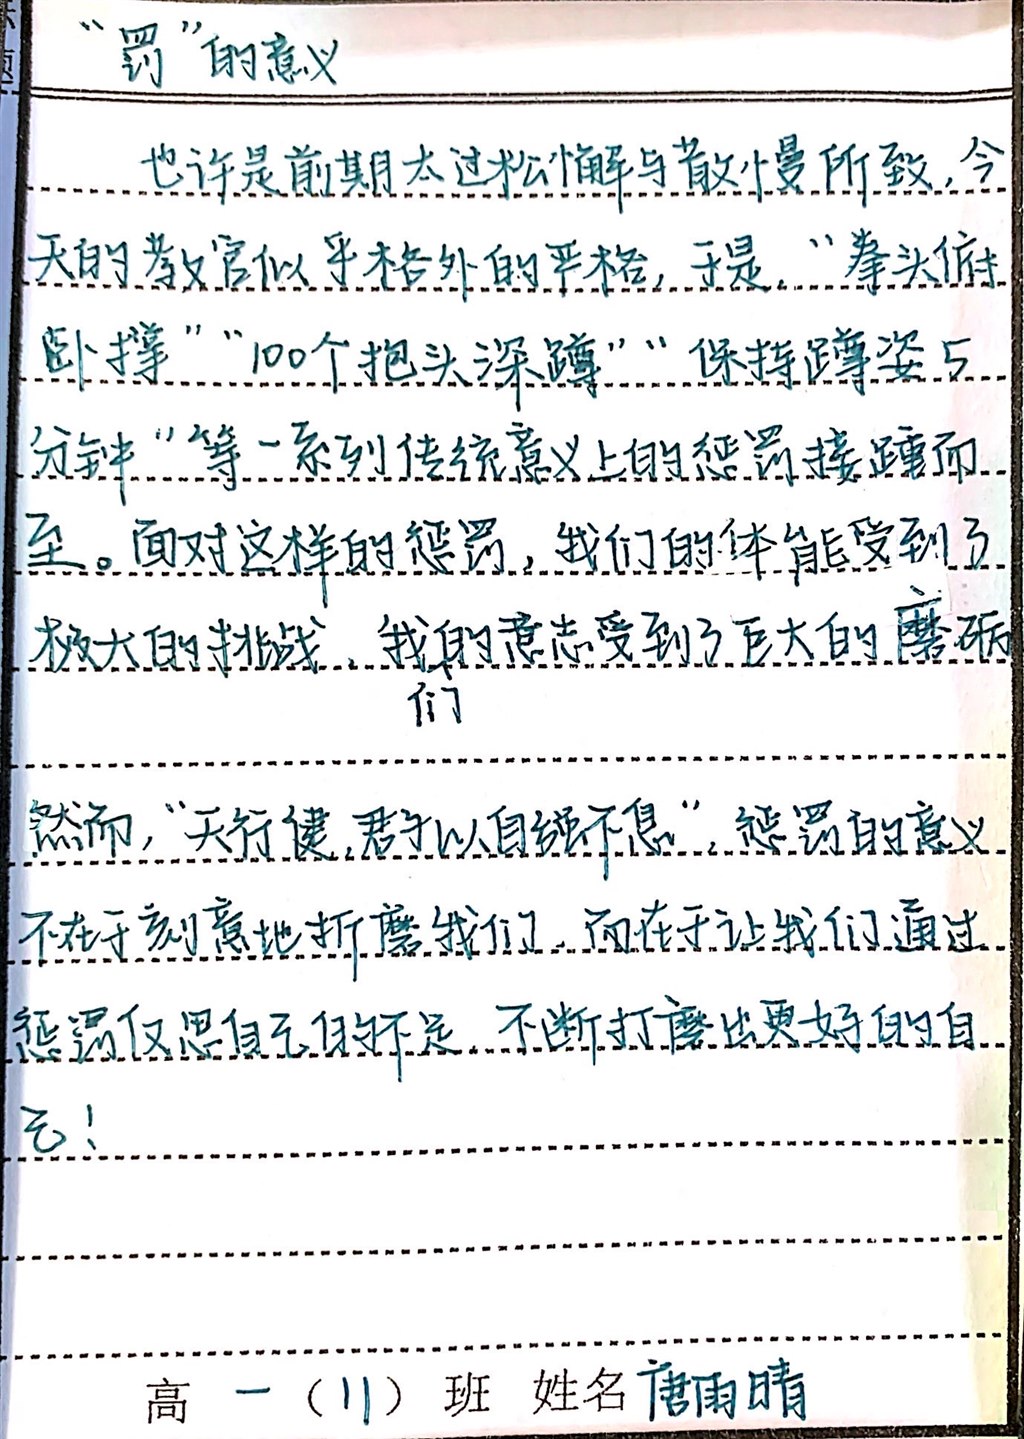 “罚”的意义
也许是前期太过松懈与散慢所致，今
天的教官似乎格外的严格，于是，“拳头俯
卧撑”“100个抱头深蹲”“保持蹲姿5
分钟”等一系列传统意义上的惩罚接踵而
至。面对这样的惩罚，我们的体能受到了
极大的挑战，我们的意志受到了巨大的磨砺
然而，“天行健，君子以自强不息”，惩罚的意义
不在于刻意地折磨我们，而在于让我们通过
惩罚反思自己的不足，不断打磨出更好的自
己！
高一（11）班 姓名唐雨晴